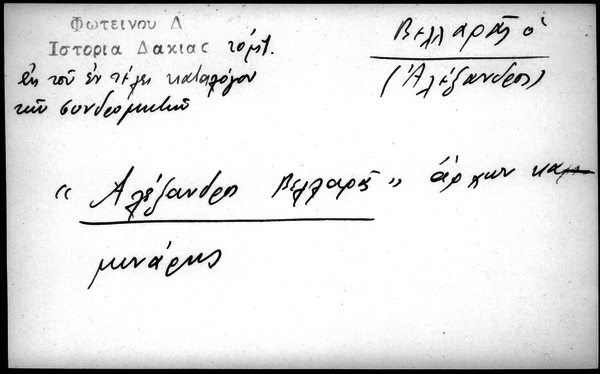 Φωτεινου Δ
Ιστορια Δακιας τόμ.
ἐκ τοῦ ἐν τέλει καταλόγου
τῶν συνδρομητῶν
Βελλαρᾶς ὁ
(Ἀλέξανδρος)
"Ἀλέξανδρος Βελλαρᾶς" ἄρχων κα
μινάρης